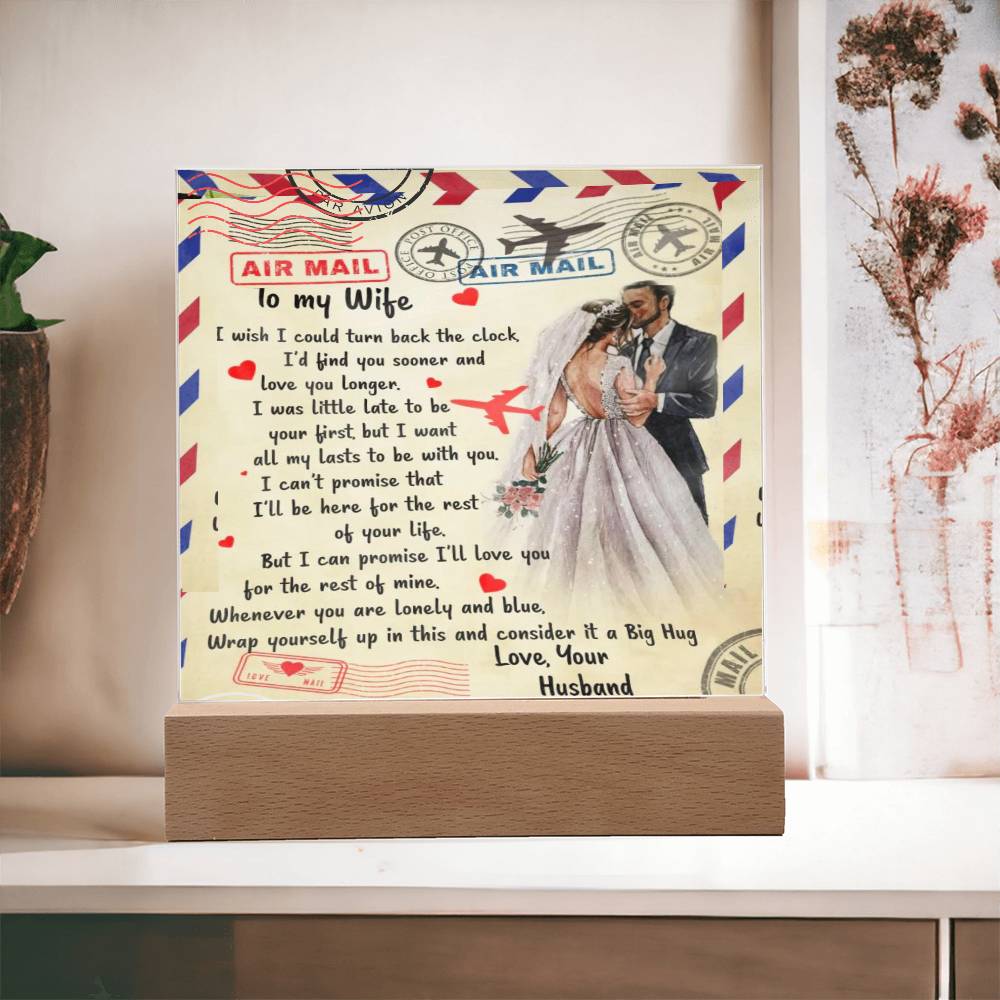 PAR AVION
POST OFFICE
POST OFFICE
AIR MAIL
AIR MAIL
AIR MAIL
AIR MAIL
To my Wife
I wish I could turn back the clock,
I'd find you sooner and
love you longer.
I was little late to be
your first, but I want
all my lasts to be with you.
I can't promise that
I'll be here for the rest
of your life,
But I can promise I'll love you
for the rest of mine.
Whenever you are lonely and blue,
Wrap yourself up in this and consider it a Big Hug
Love, Your
Husband
LOVE MAIL
MAIL